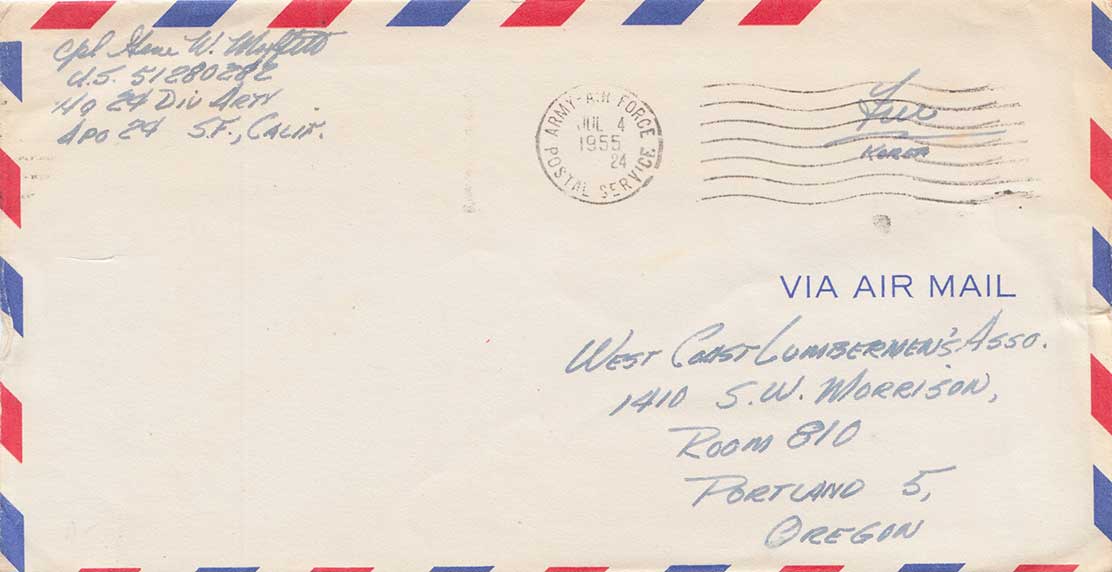 Cpl Gene W.
U.S. 51280282
Hq 24 Div Arty
APO 24 S.F., Calif.
ARMY-AIR FORCE POSTAL SERVICE
JUL 4
1955
24
Free
KOREA
VIA AIR MAIL
West Coast Lumbermen's Asso.
1410 S.W. Morrison,
Room 810
Portland 5,
Oregon